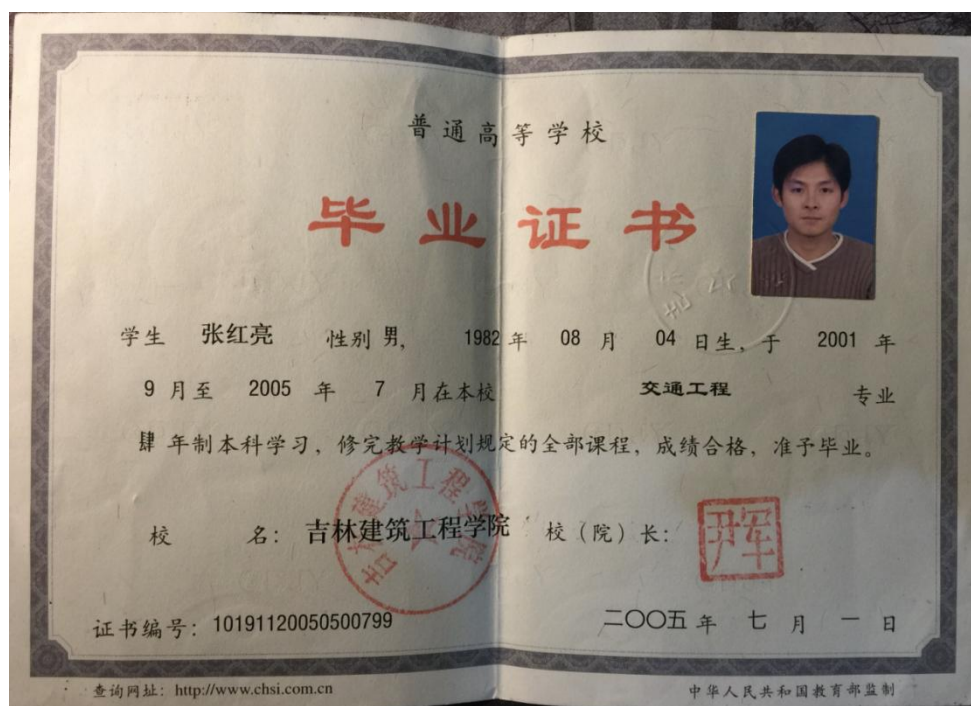 普通高等学校
毕业证书
学生 张红亮 性别 男, 1982 年 08 月 04 日生,于 2001 年
9 月至 2005 年 7 月在本校 交通工程 专业
肆 年制本科学习,修完教学计划规定的全部课程,成绩合格,准予毕业。
校 名: 吉林建筑工程学院 校(院)长:
吉林建筑工程学院
证书编号: 10191120050500799 二〇〇五 年 七 月 一 日
查询网址: http://www.chsi.com.cn 中华人民共和国教育部监制